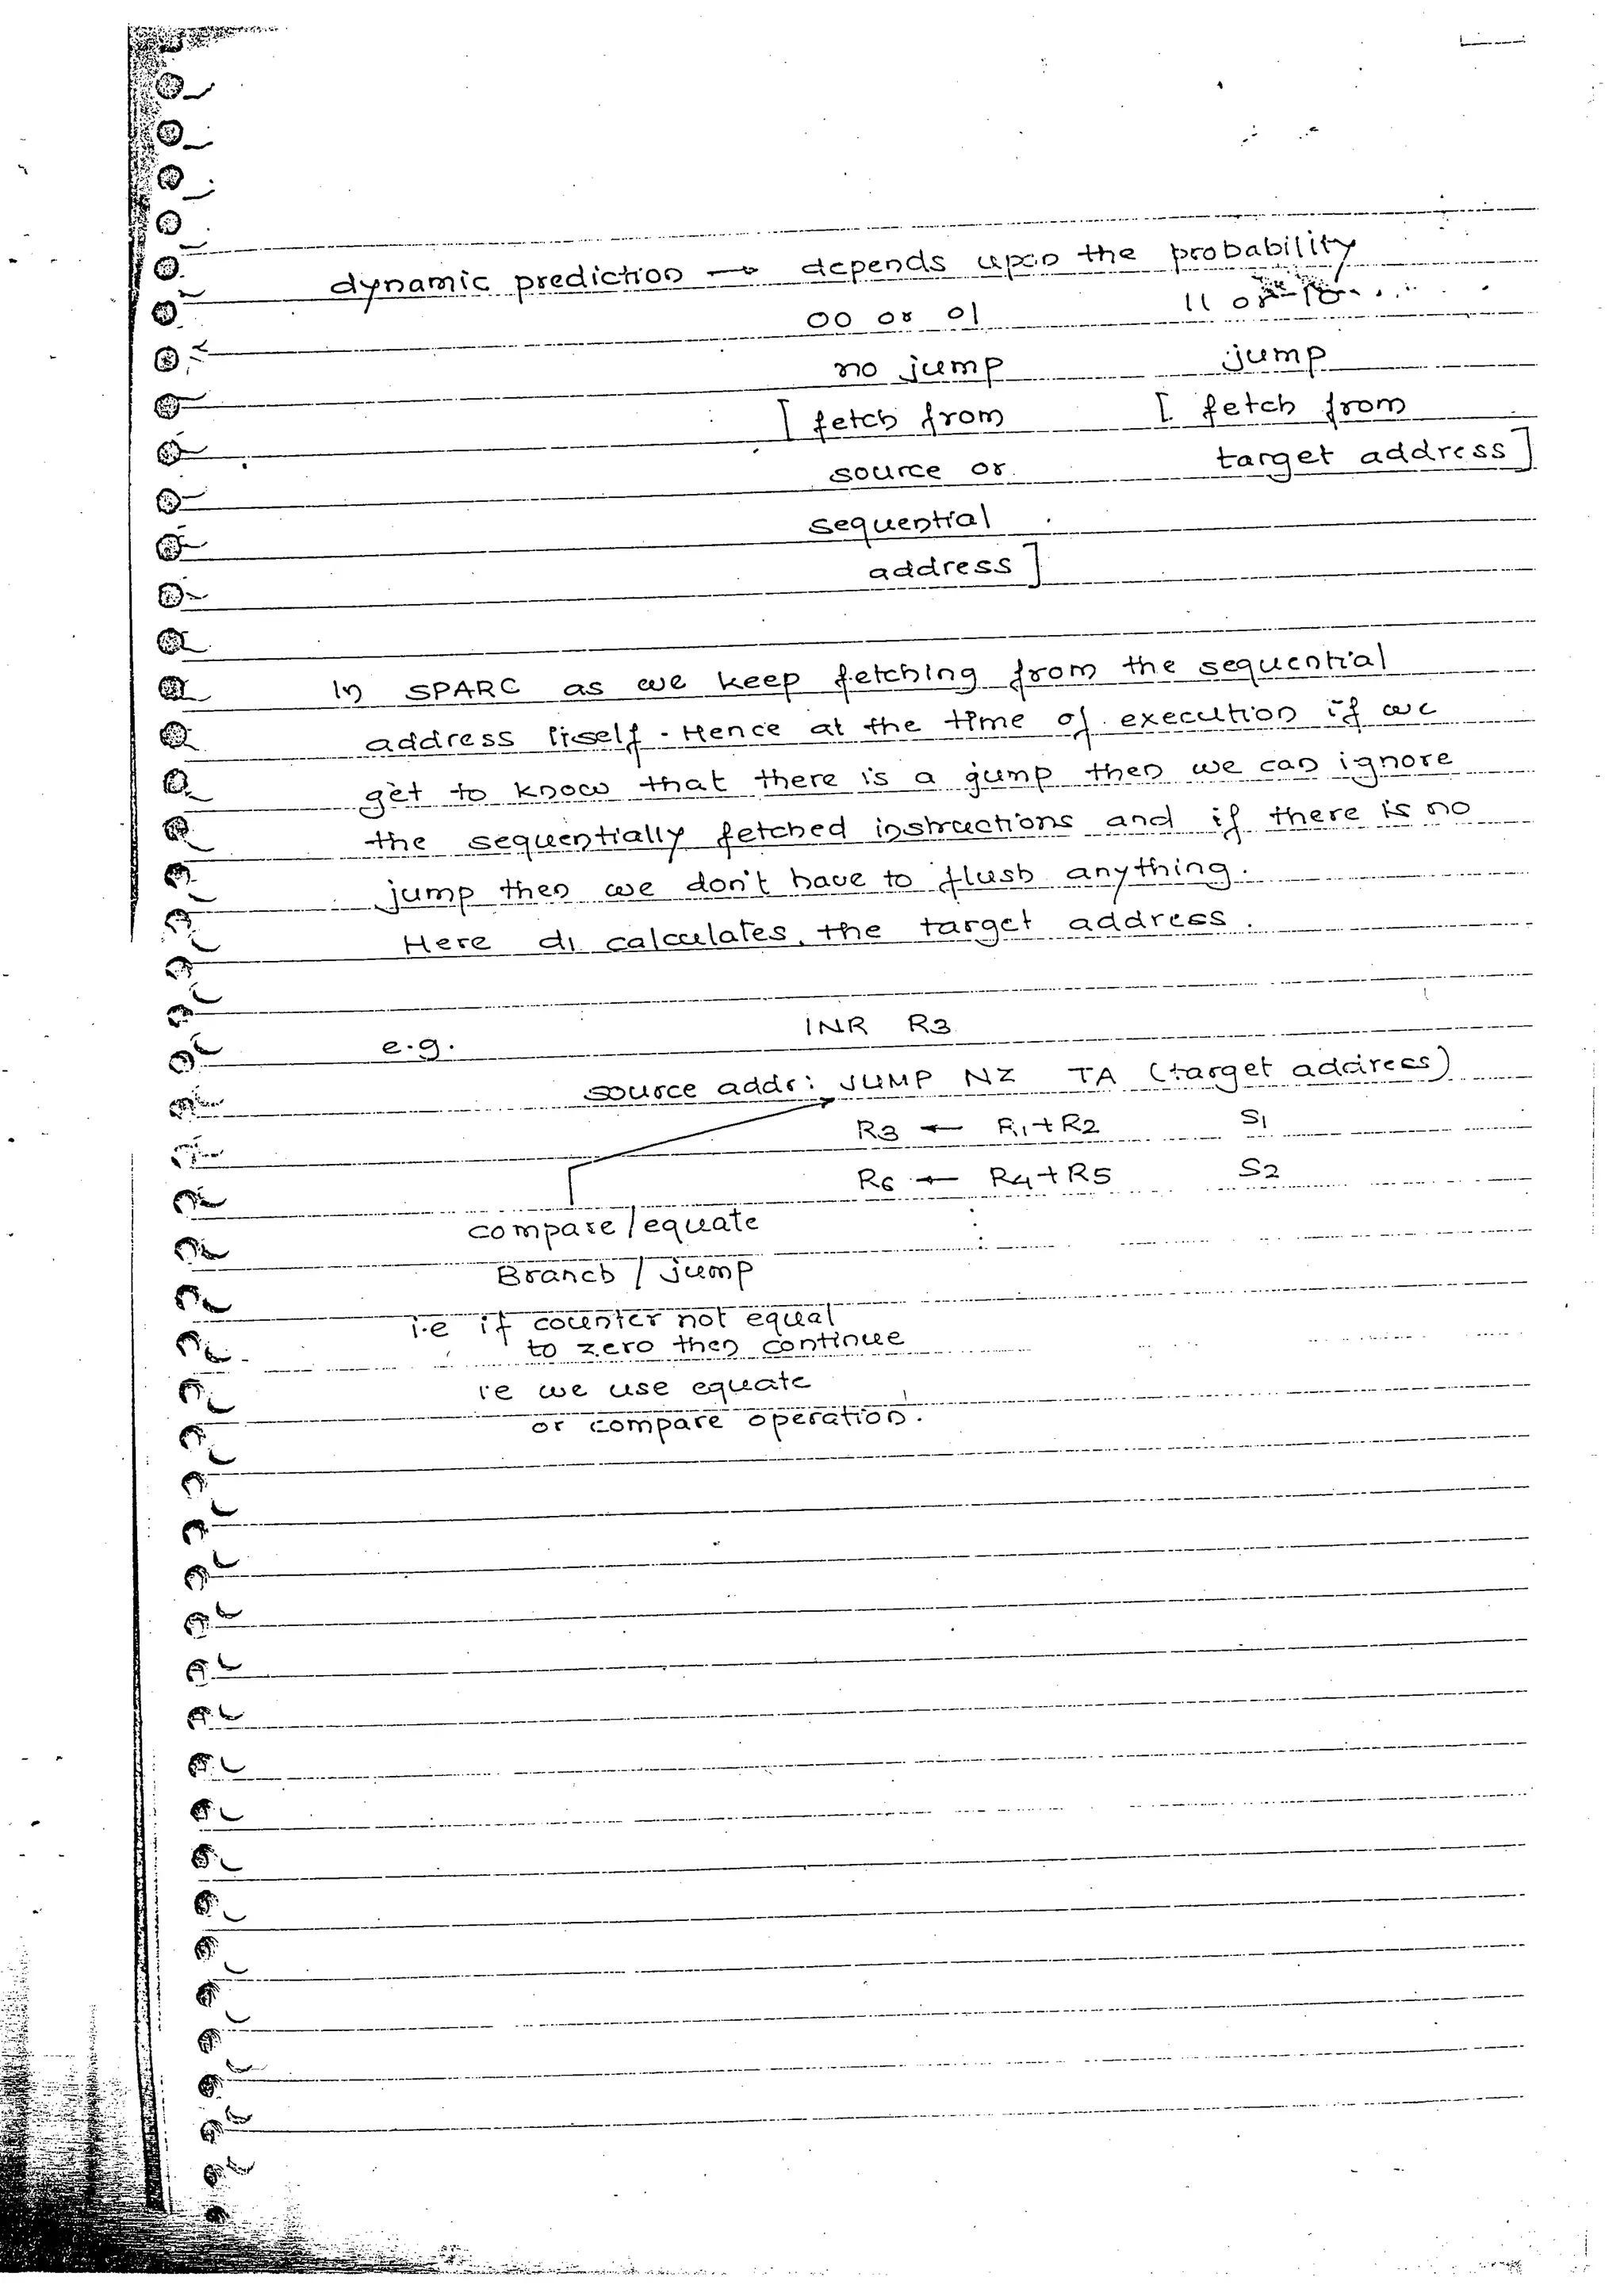 dynamic prediction → depends upon the probability
00 or 01 11 or 10
no jump jump
[ fetch from [ fetch from
source or target address ]
sequential
address ]
In SPARC as we keep fetching from the sequential
address itself. Hence at the time of execution if we
get to know that there is a jump then we can ignore
the sequentially fetched instructions and if there is no
jump then we don't have to flush anything.
Here d1 calculates the target address.
e.g. INR R3
source addr: JUMP NZ TA (target address)
R3 ← R1+R2 S1
R6 ← R4+R5 S2
compare/equate :
Branch / jump
i.e if counter not equal
to zero then continue
i.e we use equate
or compare operation.